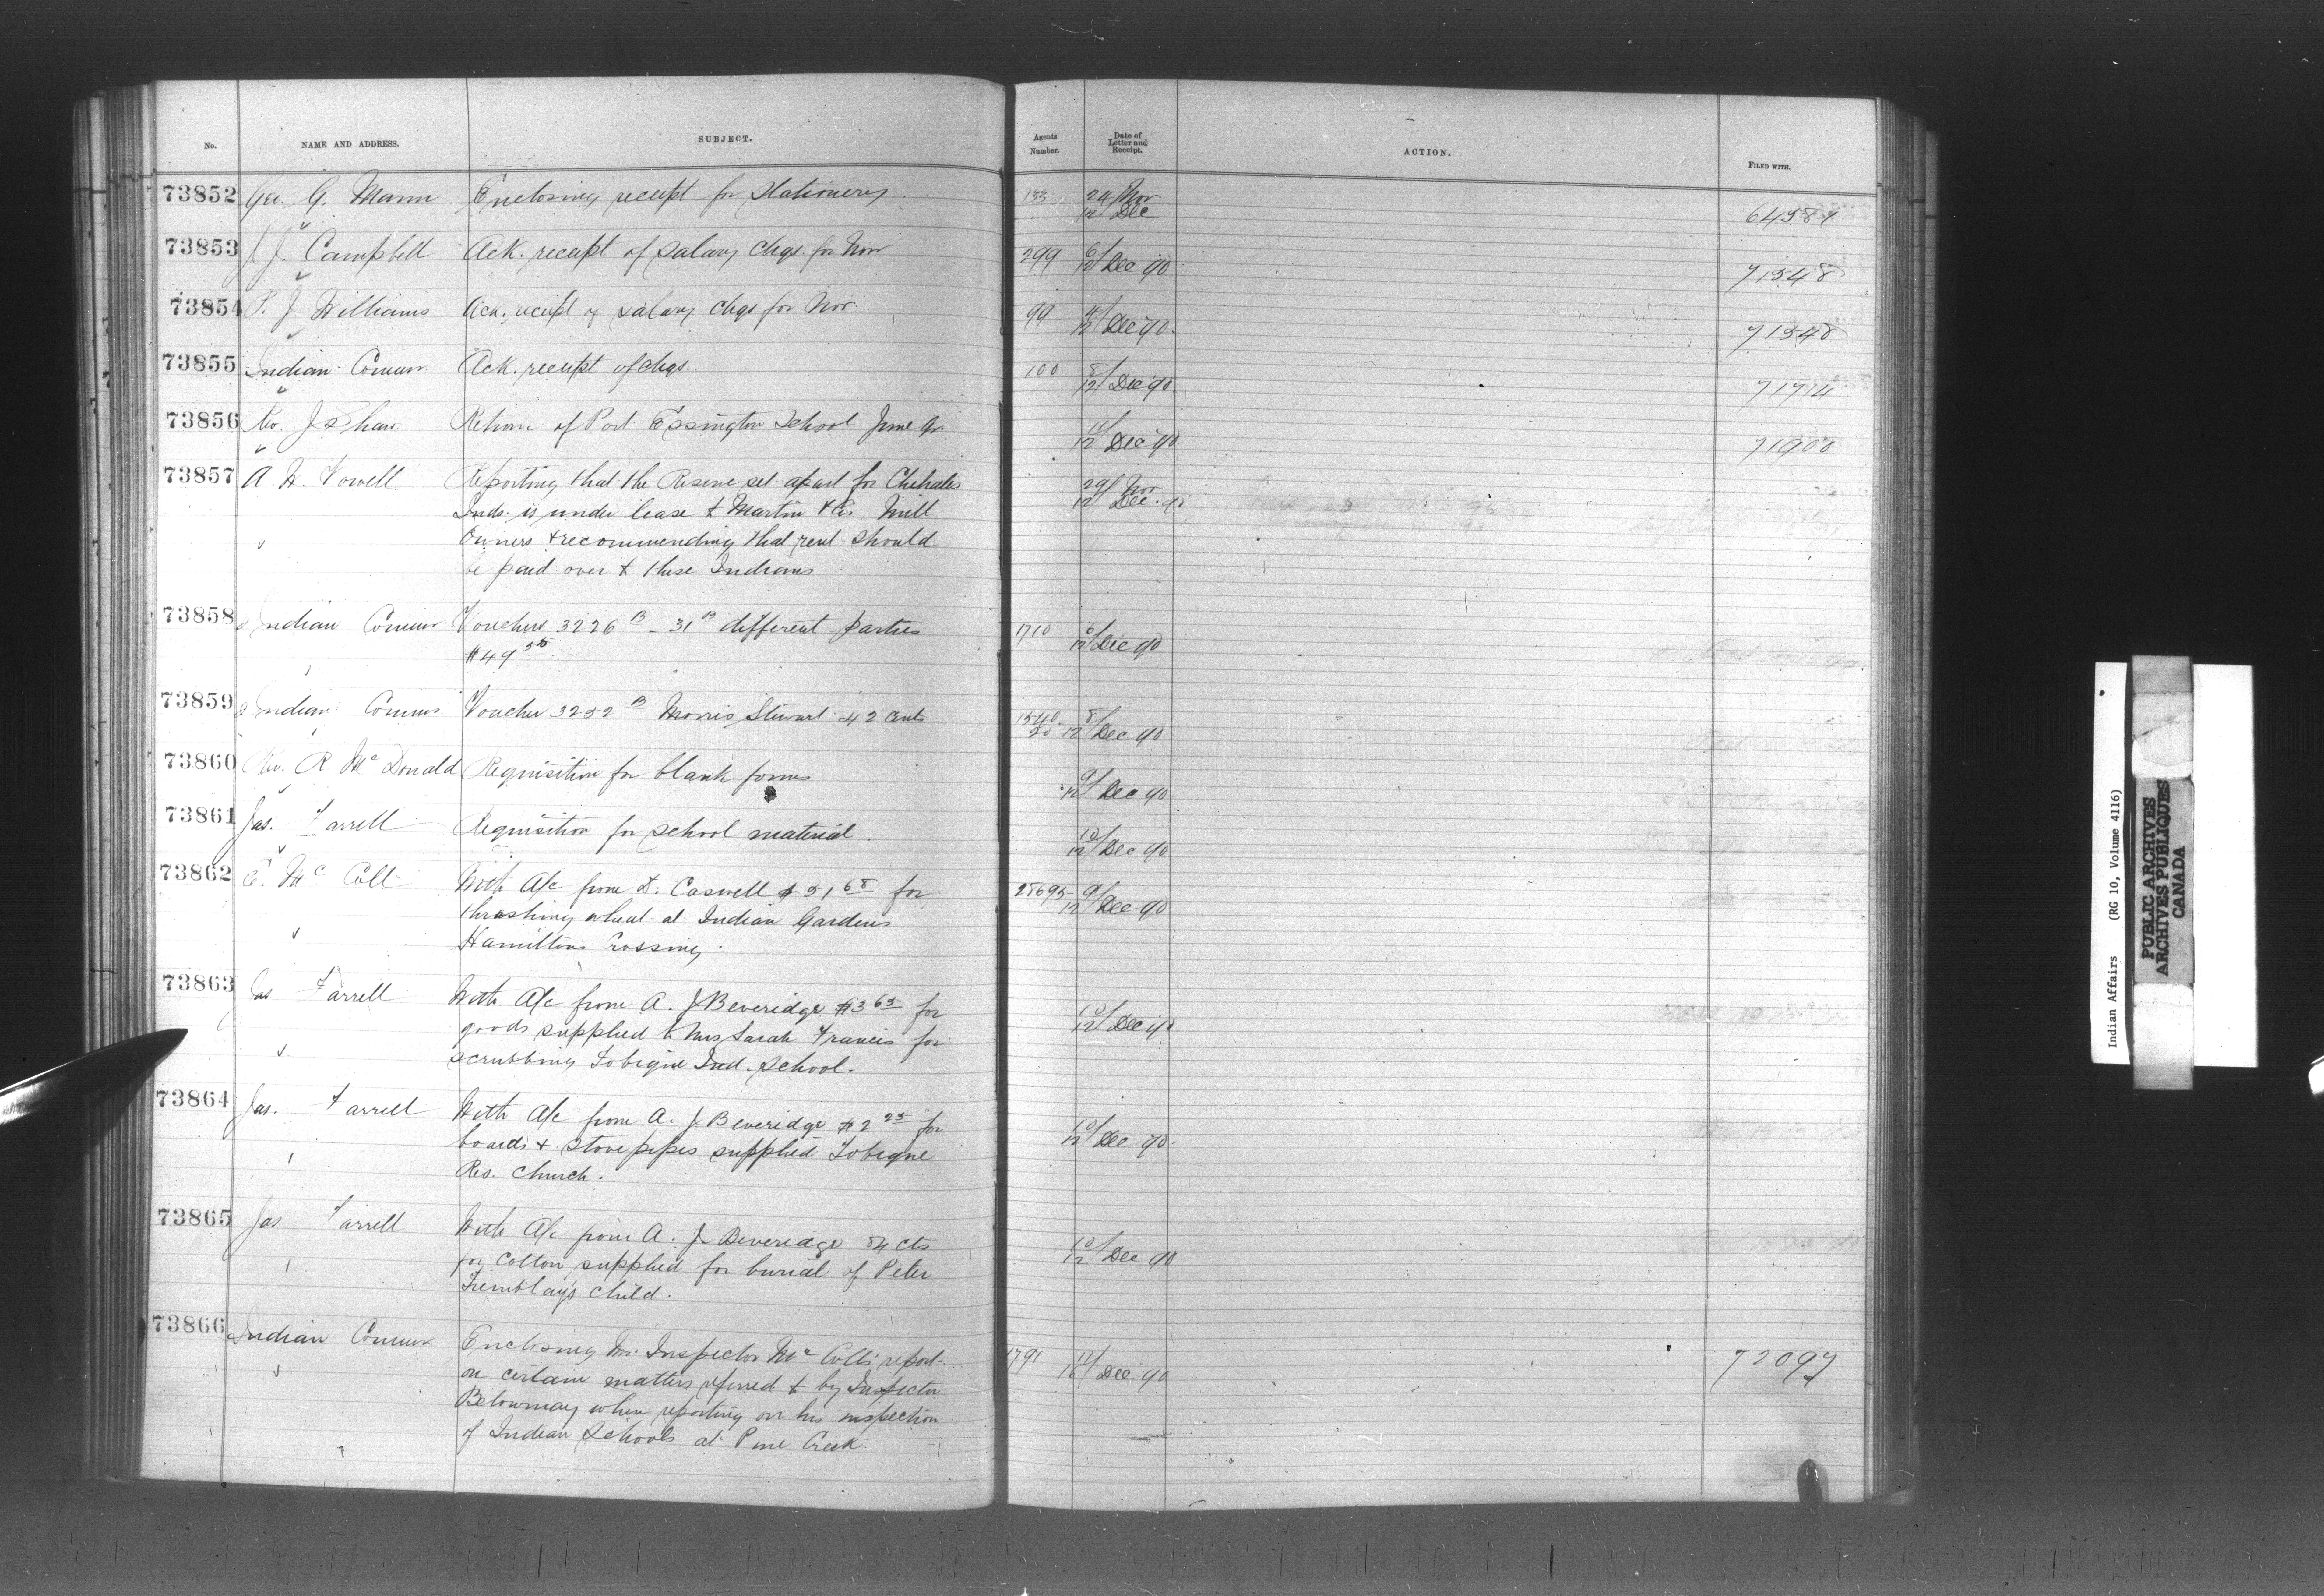 No. NAME AND ADDRESS. SUBJECT. Agents Number. Date of Letter and Receipt. ACTION. FILED WITH.
73852 Geo. G. Mann Enclosing receipt for Stationery 133 24/12 Nov Dec
73853 J. J. Campbell Ack. receipt of salary chqs. for Nov 299 6/12 Dec 90 71548
73854 P. J. Williams Ack. receipt of salary chqs for Nov. 99 4/12 Dec 90. 71548
73855 Indian Commr Ack. receipt of chqs. 100 8/12 Dec 90. 71714
73856 Rev. J Shaw Return of Port Essington School June Qr. 11/12 Dec 90 71900
73857 A. W. Vowell Reporting that the Reserve set apart for Chehales 29/12 Nov Dec. 90
Inds. is under lease to Martin & Co. Mill
Owners & recommending that rent should
be paid over to these Indians
73858 Indian Commr Vouchers 3226 B - 31 B different parties 1710 6/12 Dec 90
$49 50
73859 Indian Commr Voucher 3252 B Morris Stewart 42 cents 8/12 Dec 90
73860 Rev. R McDonald Requisition for blank forms 9/12 Dec 90
73861 Jas. Farrell Requisition for school material. 10/12 Dec 90
73862 E. McColl With A/c from D. Caswell $51 68 for 28695 9/12 Dec 90
thrashing wheat at Indian Gardens
Hamiltons Crossing.
73863 Jas Farrell With A/c from A. J Beveridge $3 65 for 10/12 Dec 90
goods supplied to Mrs Sarah Francis for
scrubbing Tobique Ind. School.
73864 Jas. Farrell With A/c from A. J. Beveridge $2 25 for 10/12 Dec 90.
boards & stovepipes supplied Tobique
Res. Church.
73865 Jas Farrell With A/c from A. J. Beveridge 84 cts 10/12 Dec 90
for cotton supplied for burial of Peter
Tremblay's child.
73866 Indian Commr Enclosing Mr. Inspector McColl's report 1791 Dec 90 72097
on certain matters referred to by Inspector
Betournay when reporting on his inspection
of Indian Schools at Pine Creek.
Indian Affairs (RG 10, Volume 4116)
PUBLIC ARCHIVES
ARCHIVES PUBLIQUES
CANADA